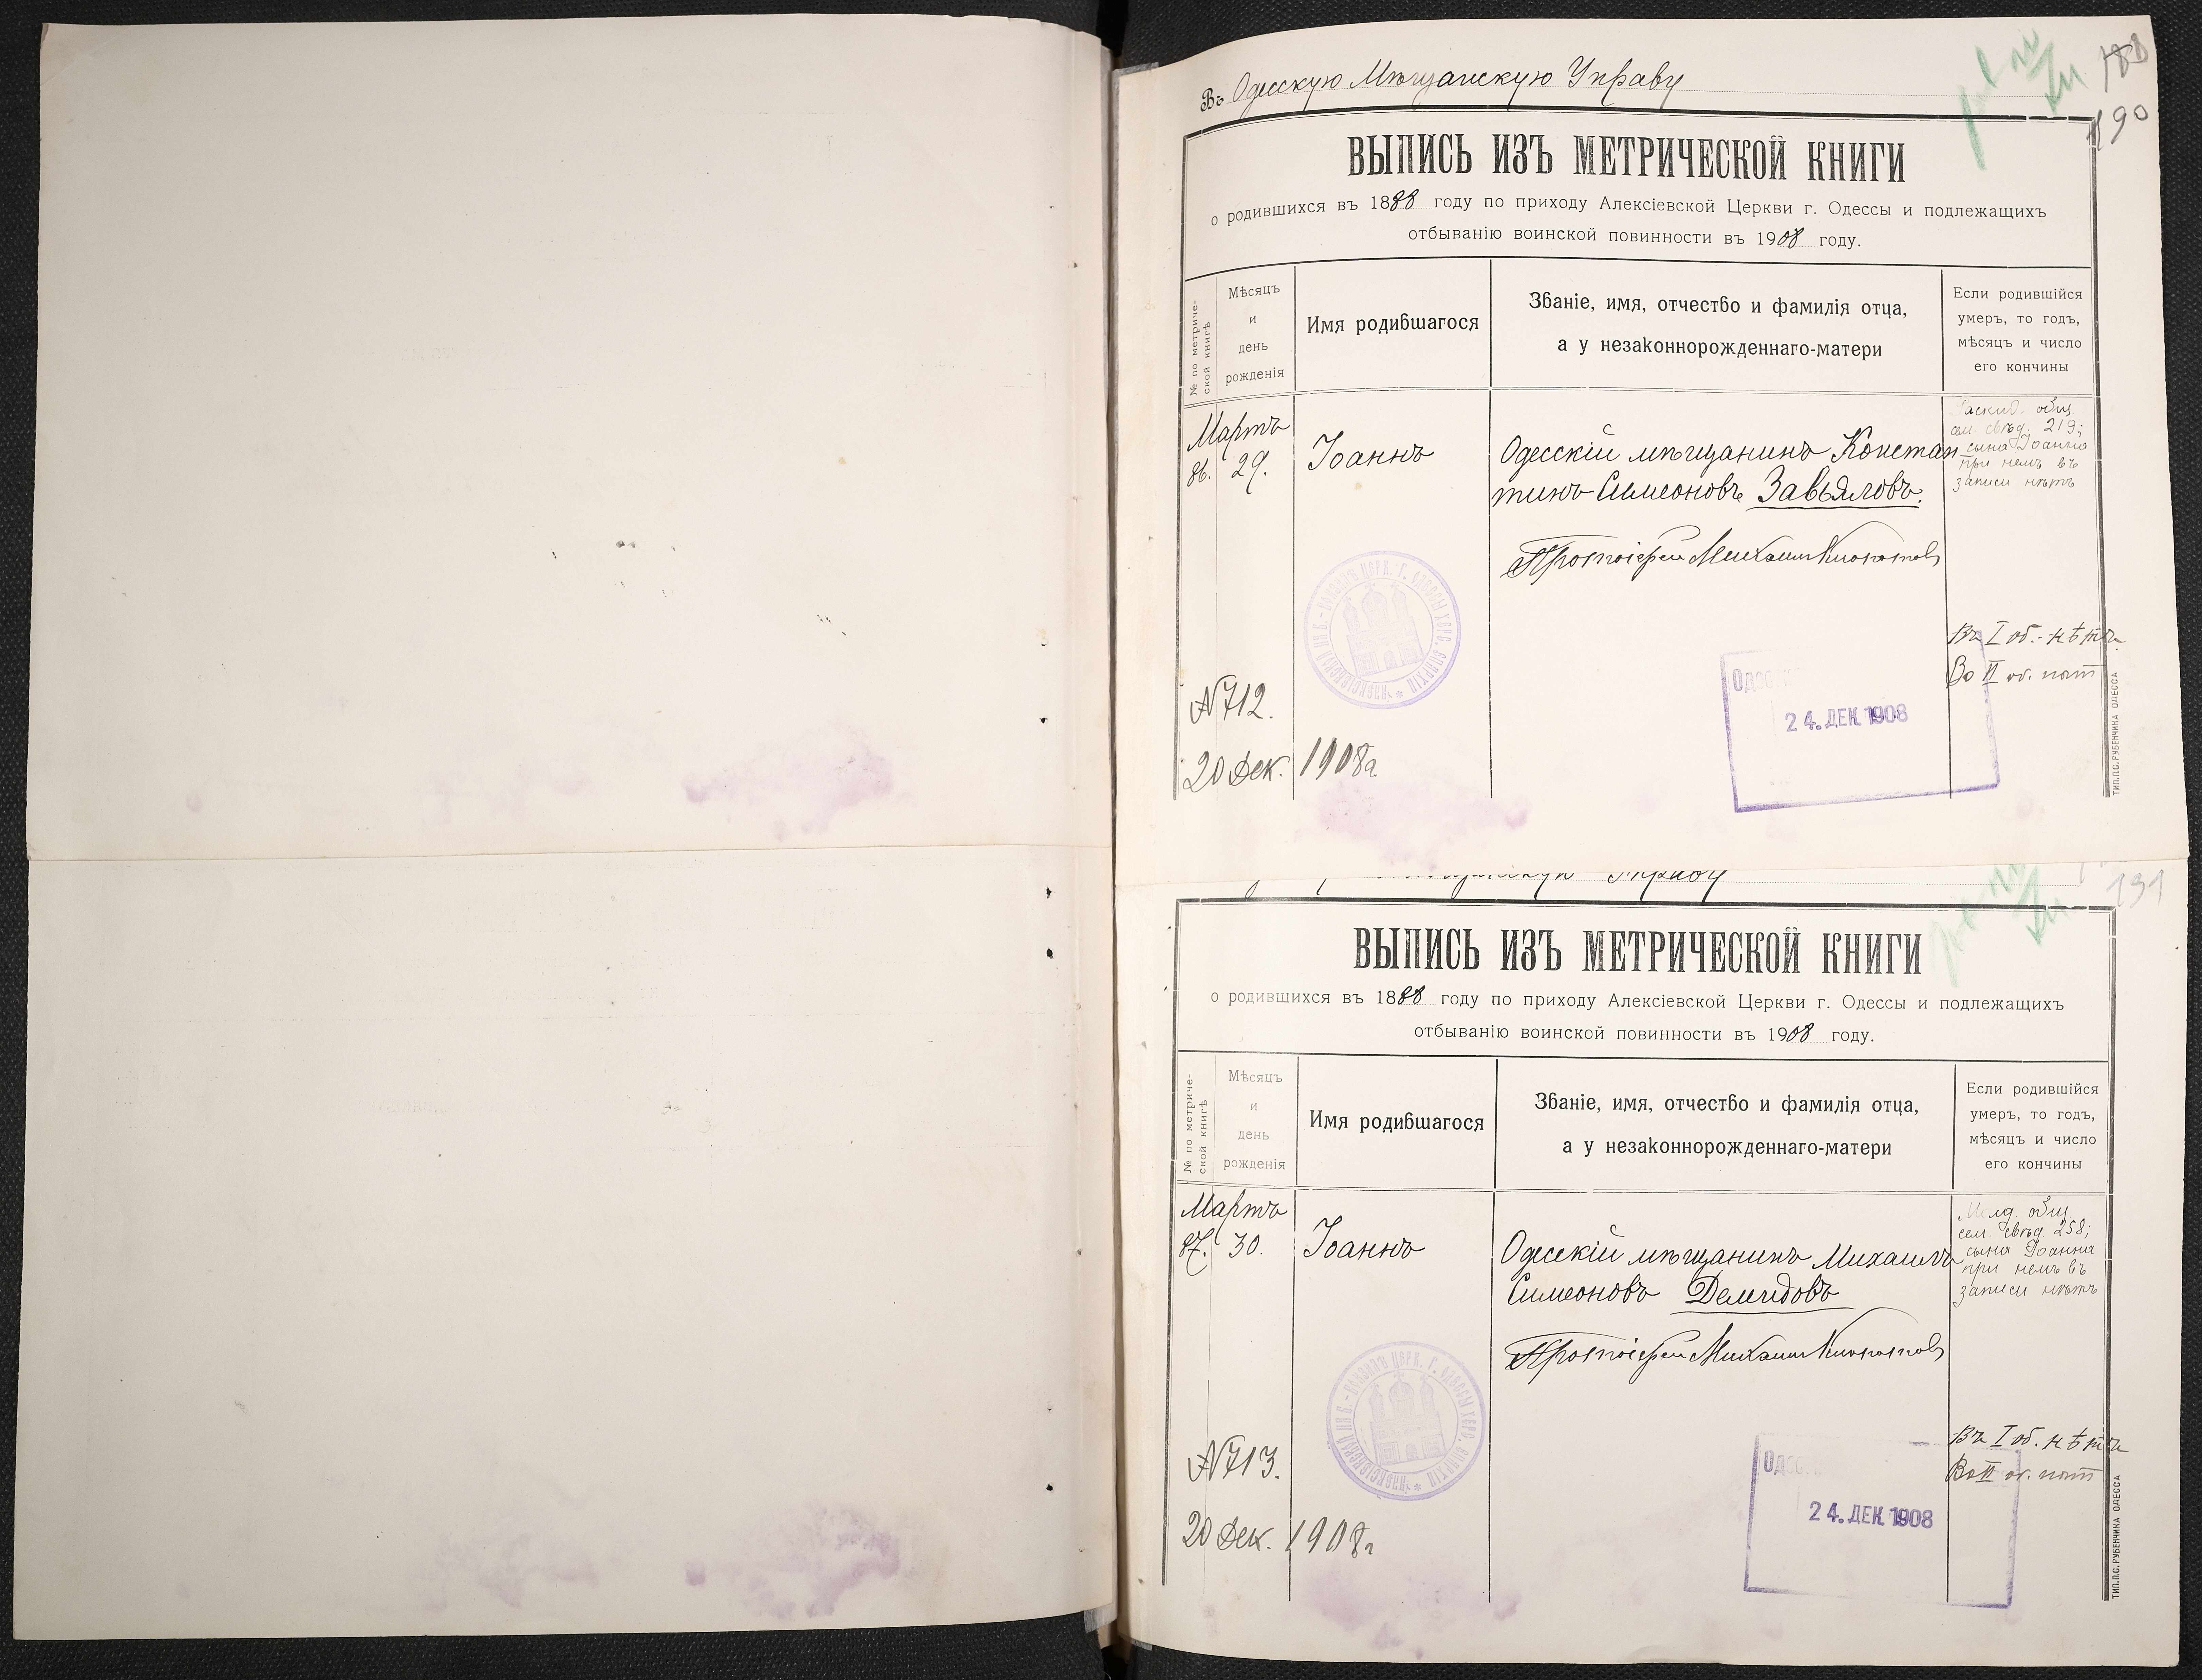 Въ Одесскую Мѣщанскую Управу
188
190
ВЫПИСЬ ИЗЪ МЕТРИЧЕСКОЙ КНИГИ
о родившихся въ 1888 году по приходу Алексіевской Церкви г. Одессы и подлежащихъ
отбыванію воинской повинности въ 1908 году.
№ по метриче-
ской книгѣ
Мѣсяцъ
и
день
рожденія
Имя родившагося
Званіе, имя, отчество и фамилія отца,
а у незаконнорожденнаго-матери
Если родившійся
умеръ, то годъ,
мѣсяцъ и число
его кончины
Мартъ
86. 29.
Іоаннъ
Одесскій мѣщанинъ Констан
тинъ Симеоновъ Завьяловъ.
Протоіерей Михаилъ
общ.
сем. свѣд. 219;
сына Іоанна
при немъ въ
записи нѣтъ
Въ I об. - нѣтъ
Во II об. нѣт
N 712.
20 Дек. 1908 г.
24. ДЕК. 1908
ТИП. П. С. РУБЕНЧИКА ОДЕССА
Мѣщанскую Управу
191
ВЫПИСЬ ИЗЪ МЕТРИЧЕСКОЙ КНИГИ
о родившихся въ 1888 году по приходу Алексіевской Церкви г. Одессы и подлежащихъ
отбыванію воинской повинности въ 1908 году.
№ по метриче-
ской книгѣ
Мѣсяцъ
и
день
рожденія
Имя родившагося
Званіе, имя, отчество и фамилія отца,
а у незаконнорожденнаго-матери
Если родившійся
умеръ, то годъ,
мѣсяцъ и число
его кончины
Мартъ
87. 30.
Іоаннъ
Одесскій мѣщанинъ Михаилъ
Симеоновъ Демидовъ
Протоіерей Михаилъ
общ.
сем. свѣд. 258;
сына Іоанна
при немъ въ
записи нѣтъ
Въ I об. нѣтъ
Во II об. нѣт
N 713.
20 Дек. 1908 г
24. ДЕК. 1908
ТИП. П. С. РУБЕНЧИКА ОДЕССА